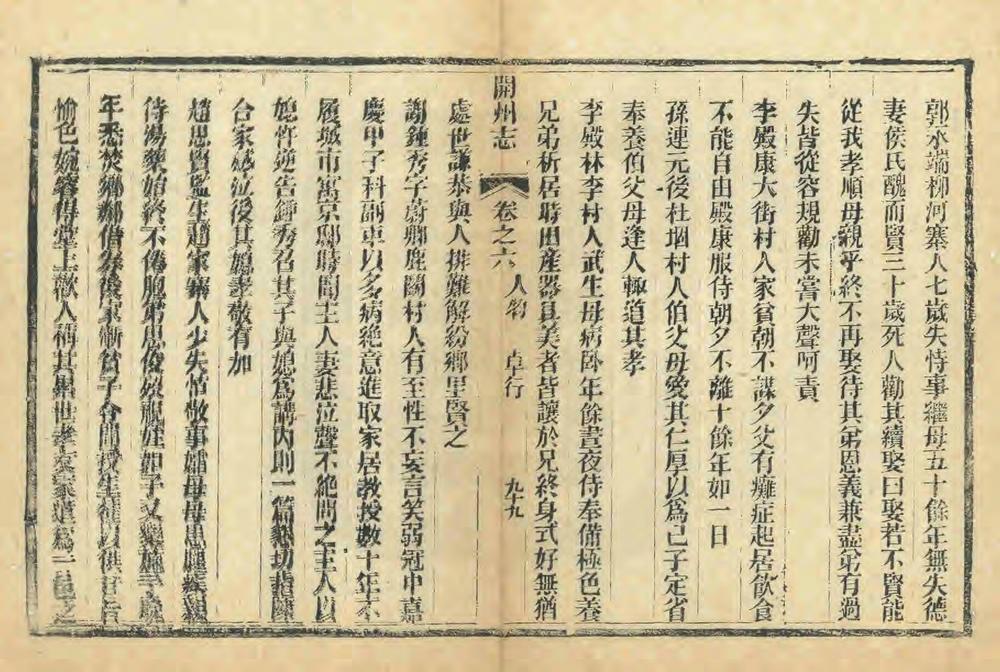 郭永端柳河寨人七歲失恃事繼母五十餘年無失德
妻侯氏醜而賢三十歲死人勸其續娶曰娶若不賢能
從我孝順母親乎終不再娶待其弟恩義兼盡弟有過
失皆從容規勸未嘗大聲呵責
李殿康大街村人家貧朝不謀夕父有癱症起居飲食
不能自由殿康服侍朝夕不離十餘年如一日
孫連元後杜堌村人伯父母愛其仁厚以為己子定省
奉養伯父母逢人輒道其孝
李殿林李村人武生母病臥年餘晝夜侍奉備極色養
兄弟析居時田產器具美者皆讓於兄終身式好無猶
開州志 卷之六 人物 卓行 九十九
處世謙恭與人排難解紛鄉里賢之
謝鍾秀字蔚卿鹿關村人有至性不妄言笑弱冠中嘉
慶甲子科副車以多病絕意進取家居教授數十年不
履城市寓京邸時聞主人妻悲泣聲不絕問之主人以
媳忤逆告鍾秀召其子與媳為講內則一篇懇切指陳
台家感泣後其媳孝敬有加
趙思賢監生趙家寨人少失怙敬事孀母母患腿疾親
侍湯藥始終不倦胞弟思俊歿撫姪如子又樂施
年悉焚鄉鄰借券後家漸貧子令聞授生徒以供甘旨
愉色婉容得堂上歡人稱其累世孝友家道為一邑之